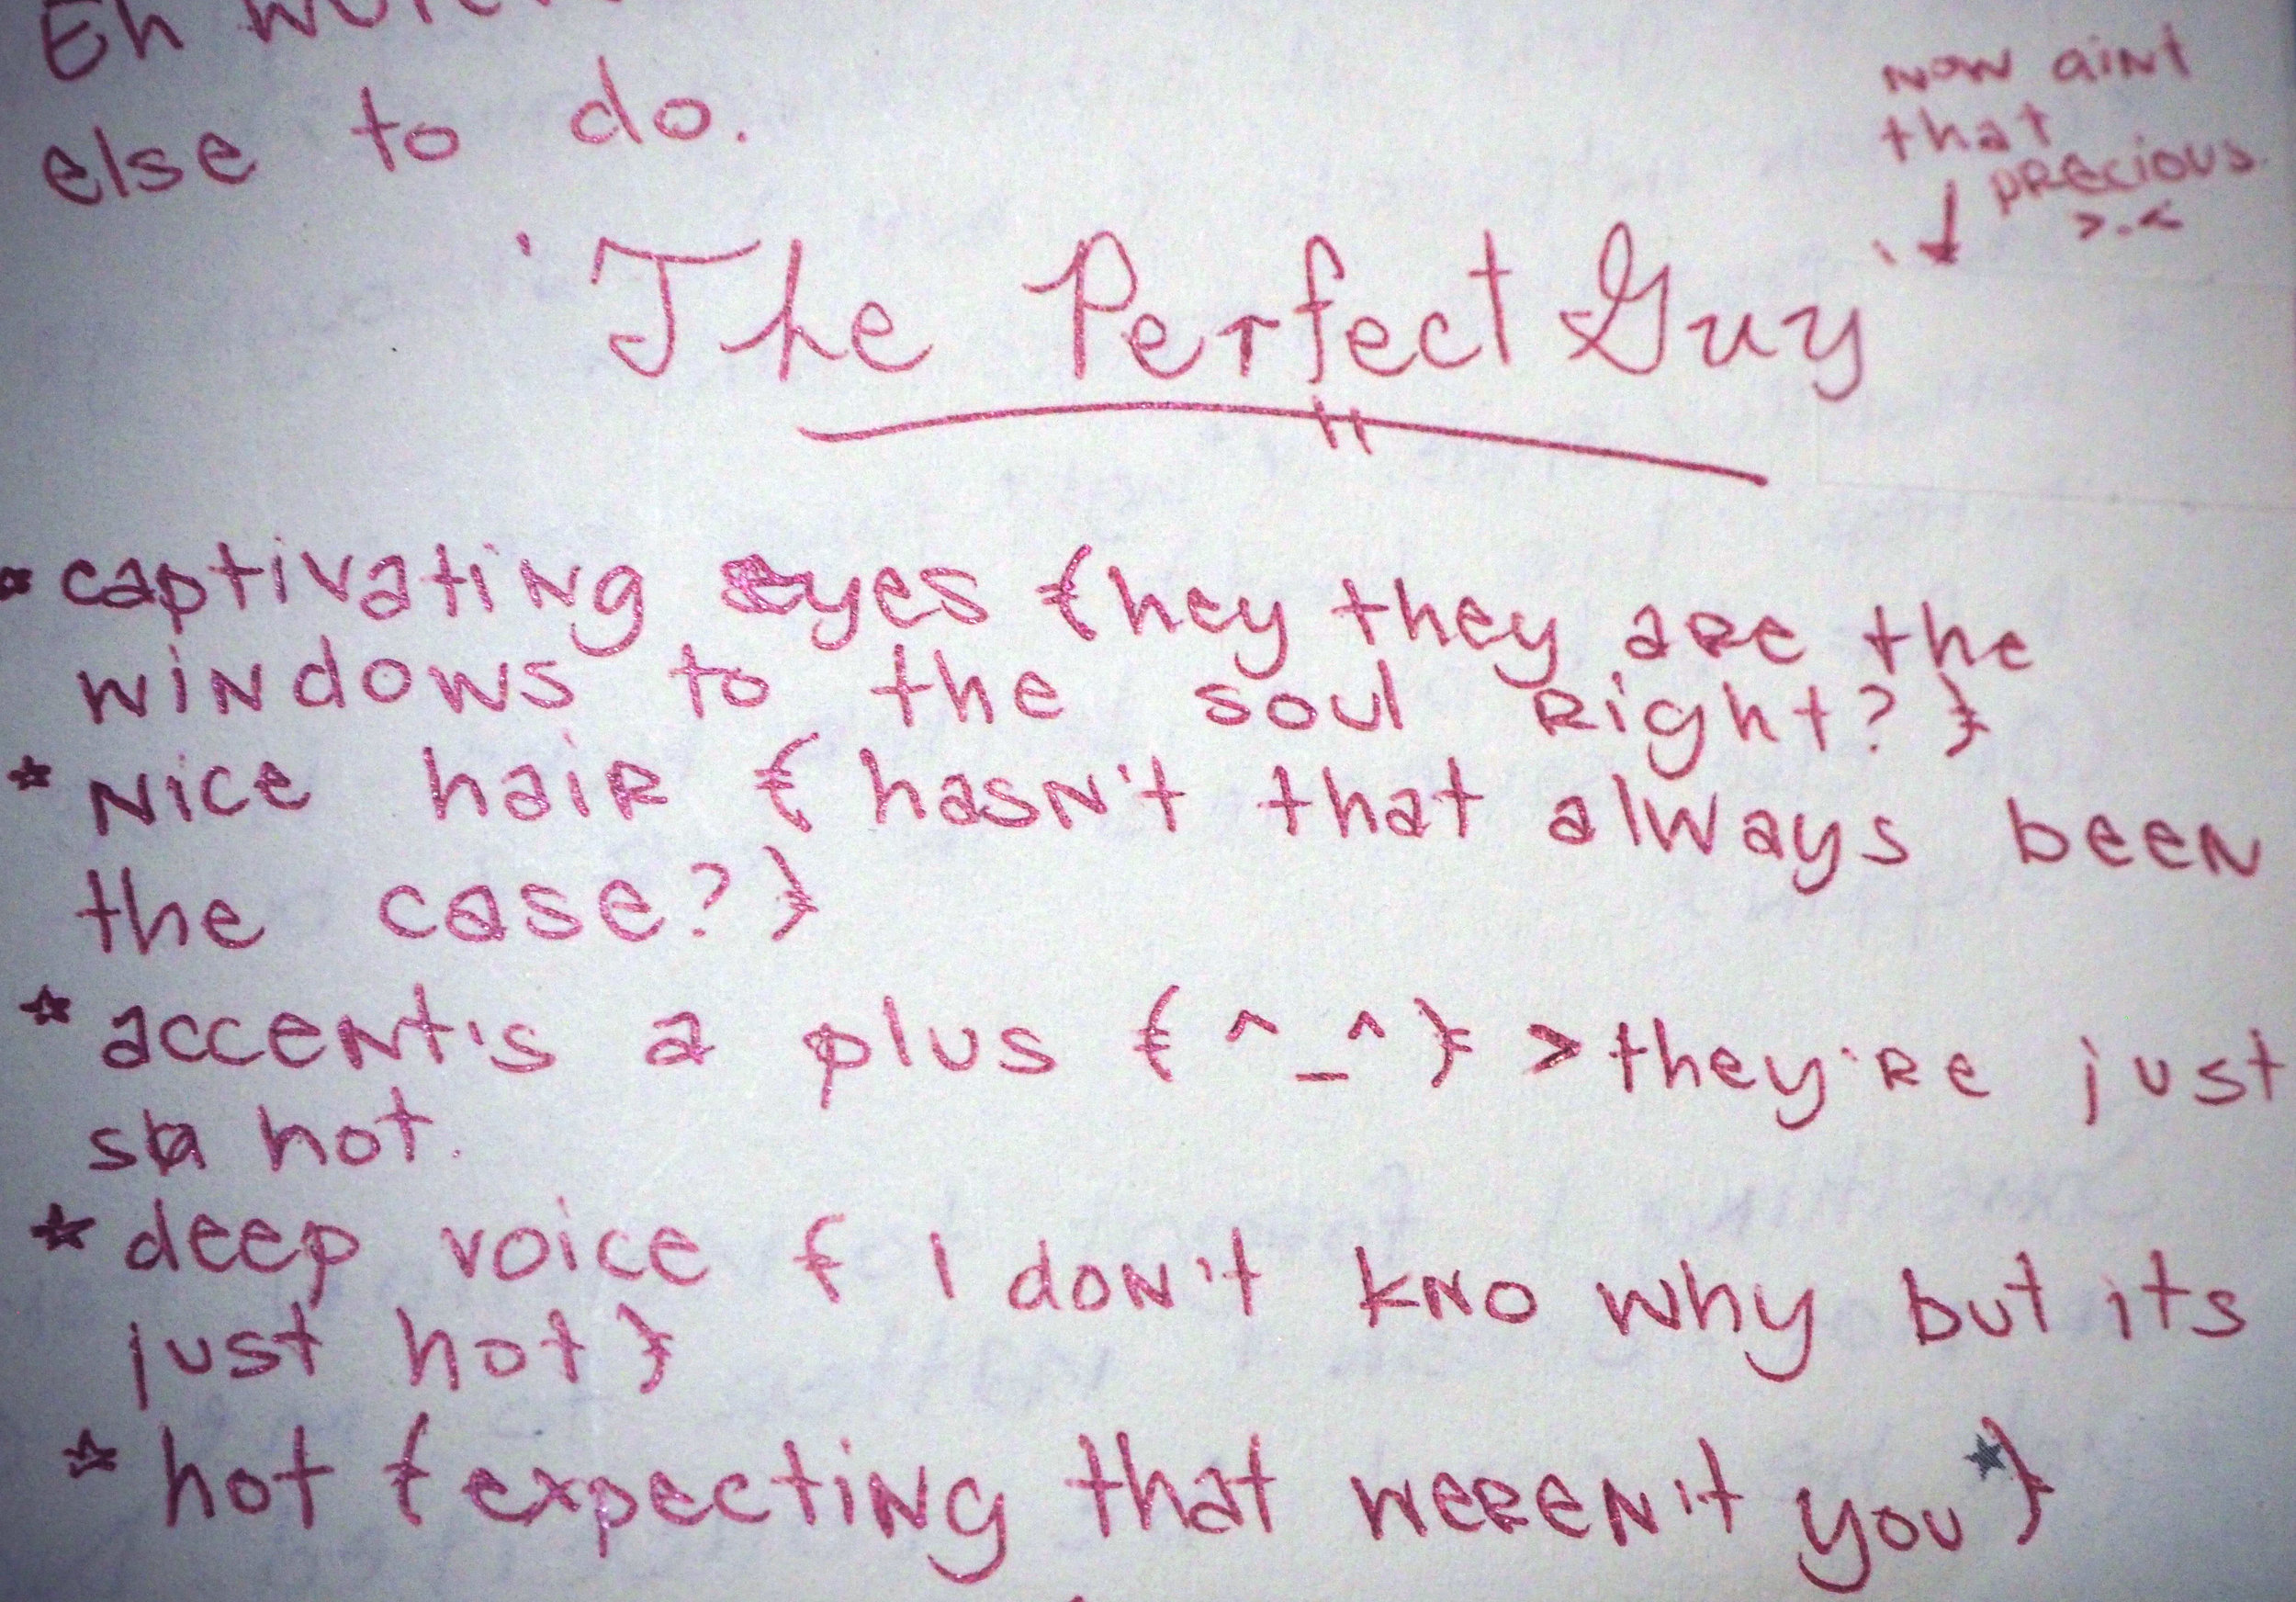 Eh
else to do.
now aint
that
precious
>.<
'The Perfect Guy'
captivating eyes {hey they are the
windows to the soul right?}
* Nice hair {hasn't that always been
the case?}
* accent's a plus {^_^} > they're just
hot.
* deep voice { I don't kno why but its
just hot}
* hot {expecting that weren't you*}